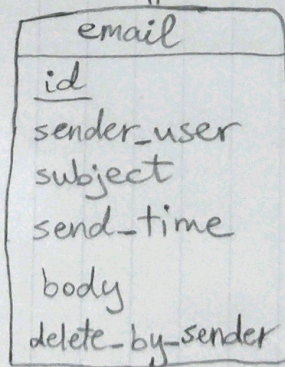 email
id
sender_user
subject
send_time
body
delete_by_sender